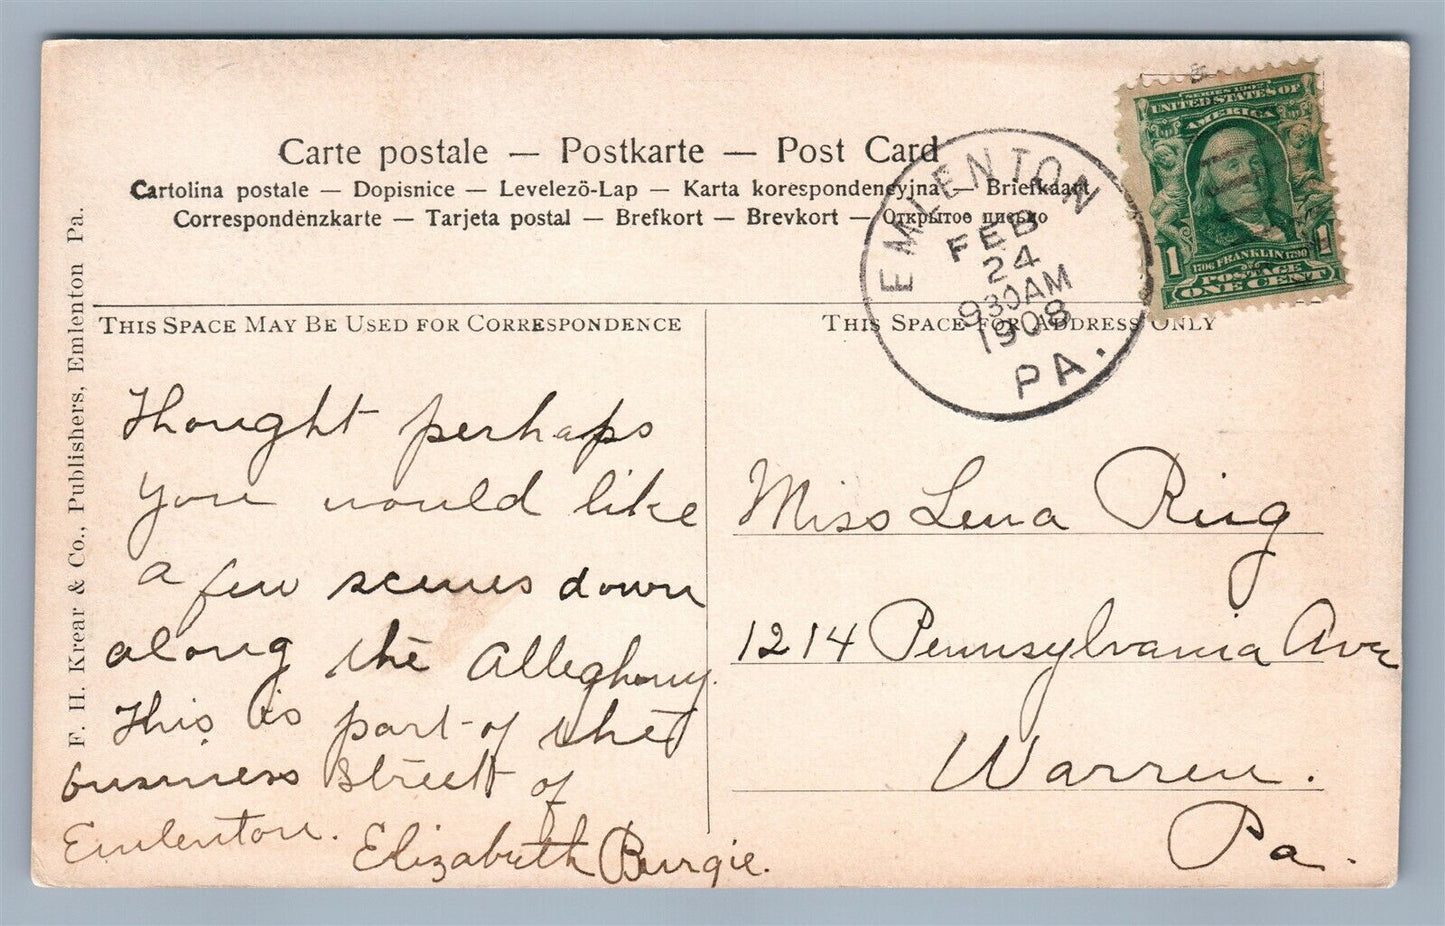 Carte postale — Postkarte — Post Card
Cartolina postale — Dopisnice — Levelező-Lap — Karta korespondencyjna — Briefkaart
Correspondenzkarte — Tarjeta postal — Brefkort — Brevkort — Открытое письмо
SERIES 1902
UNITED STATES OF
AMERICA
1706 FRANKLIN 1790
1 1
POSTAGE
ONE CENT
EMLENTON
FEB
24
930AM
1908
PA.
F. H. Krear & Co., Publishers, Emlenton Pa.
THIS SPACE MAY BE USED FOR CORRESPONDENCE
Thought perhaps
you would like
a few scenes down
along the Alleghany.
This is part of the
business street of
Emlenton.
Elizabeth Burgie.
THIS SPACE FOR ADDRESS ONLY
Miss Lena Ring
1214 Pennsylvania Ave
Warren.
Pa.